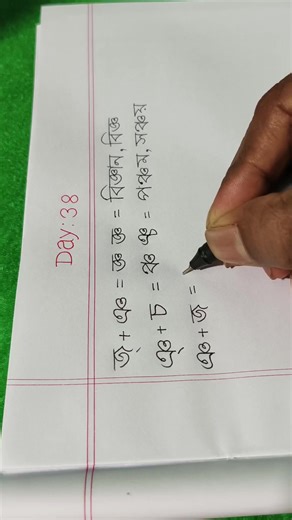 Day: 38
জ্ + ঞ = জ্ঞ জ্ঞ = বিজ্ঞান, বিজ্ঞ
ঞ্ + চ = ঞ্চ ঞ্চ = পঞ্চম, সঞ্চয়
ঞ্ + জ =